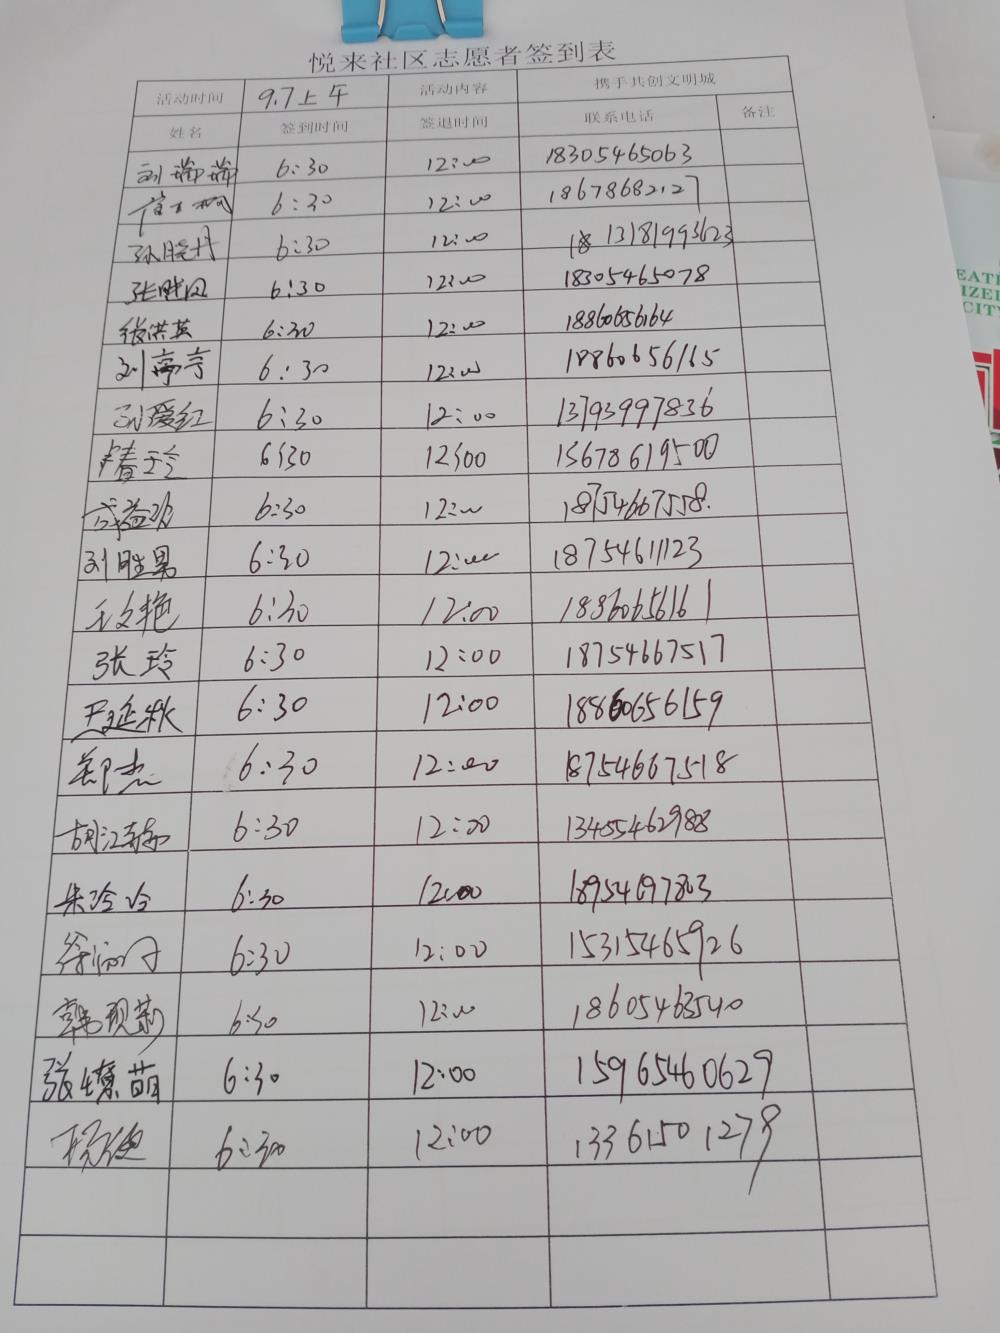 悦来社区志愿者签到表
活动时间 9.7上午 活动内容 携手共创文明城
姓名 签到时间 签退时间 联系电话 备注
刘瑞瑞 6:30 12:00 18305465063
6:30 12:00 18678682127
孙晓丹 6:30 12:00 13181993623
张胜国 6:30 12:00 18305465078
张洪英 6:30 12:00 18860656164
刘亭亭 6:30 12:00 18860656165
孙爱红 6:30 12:00 13793997836
6:30 12:00 15678619500
6:30 12:00 18754667558
刘胜男 6:30 12:00 18754611123
王文艳 6:30 12:00 18860656161
张玲 6:30 12:00 18754667517
尹延秋 6:30 12:00 18860656159
郭杰 6:30 12:00 18754667518
胡江 6:30 12:00 13405462988
朱玲玲 6:30 12:00 18954697803
6:30 12:00 15315465926
韩现菊 6:30 12:00 18605463540
张 萌 6:30 12:00 15965460629
杨 6:30 12:00 13361501279
EATE
IZED
CITY